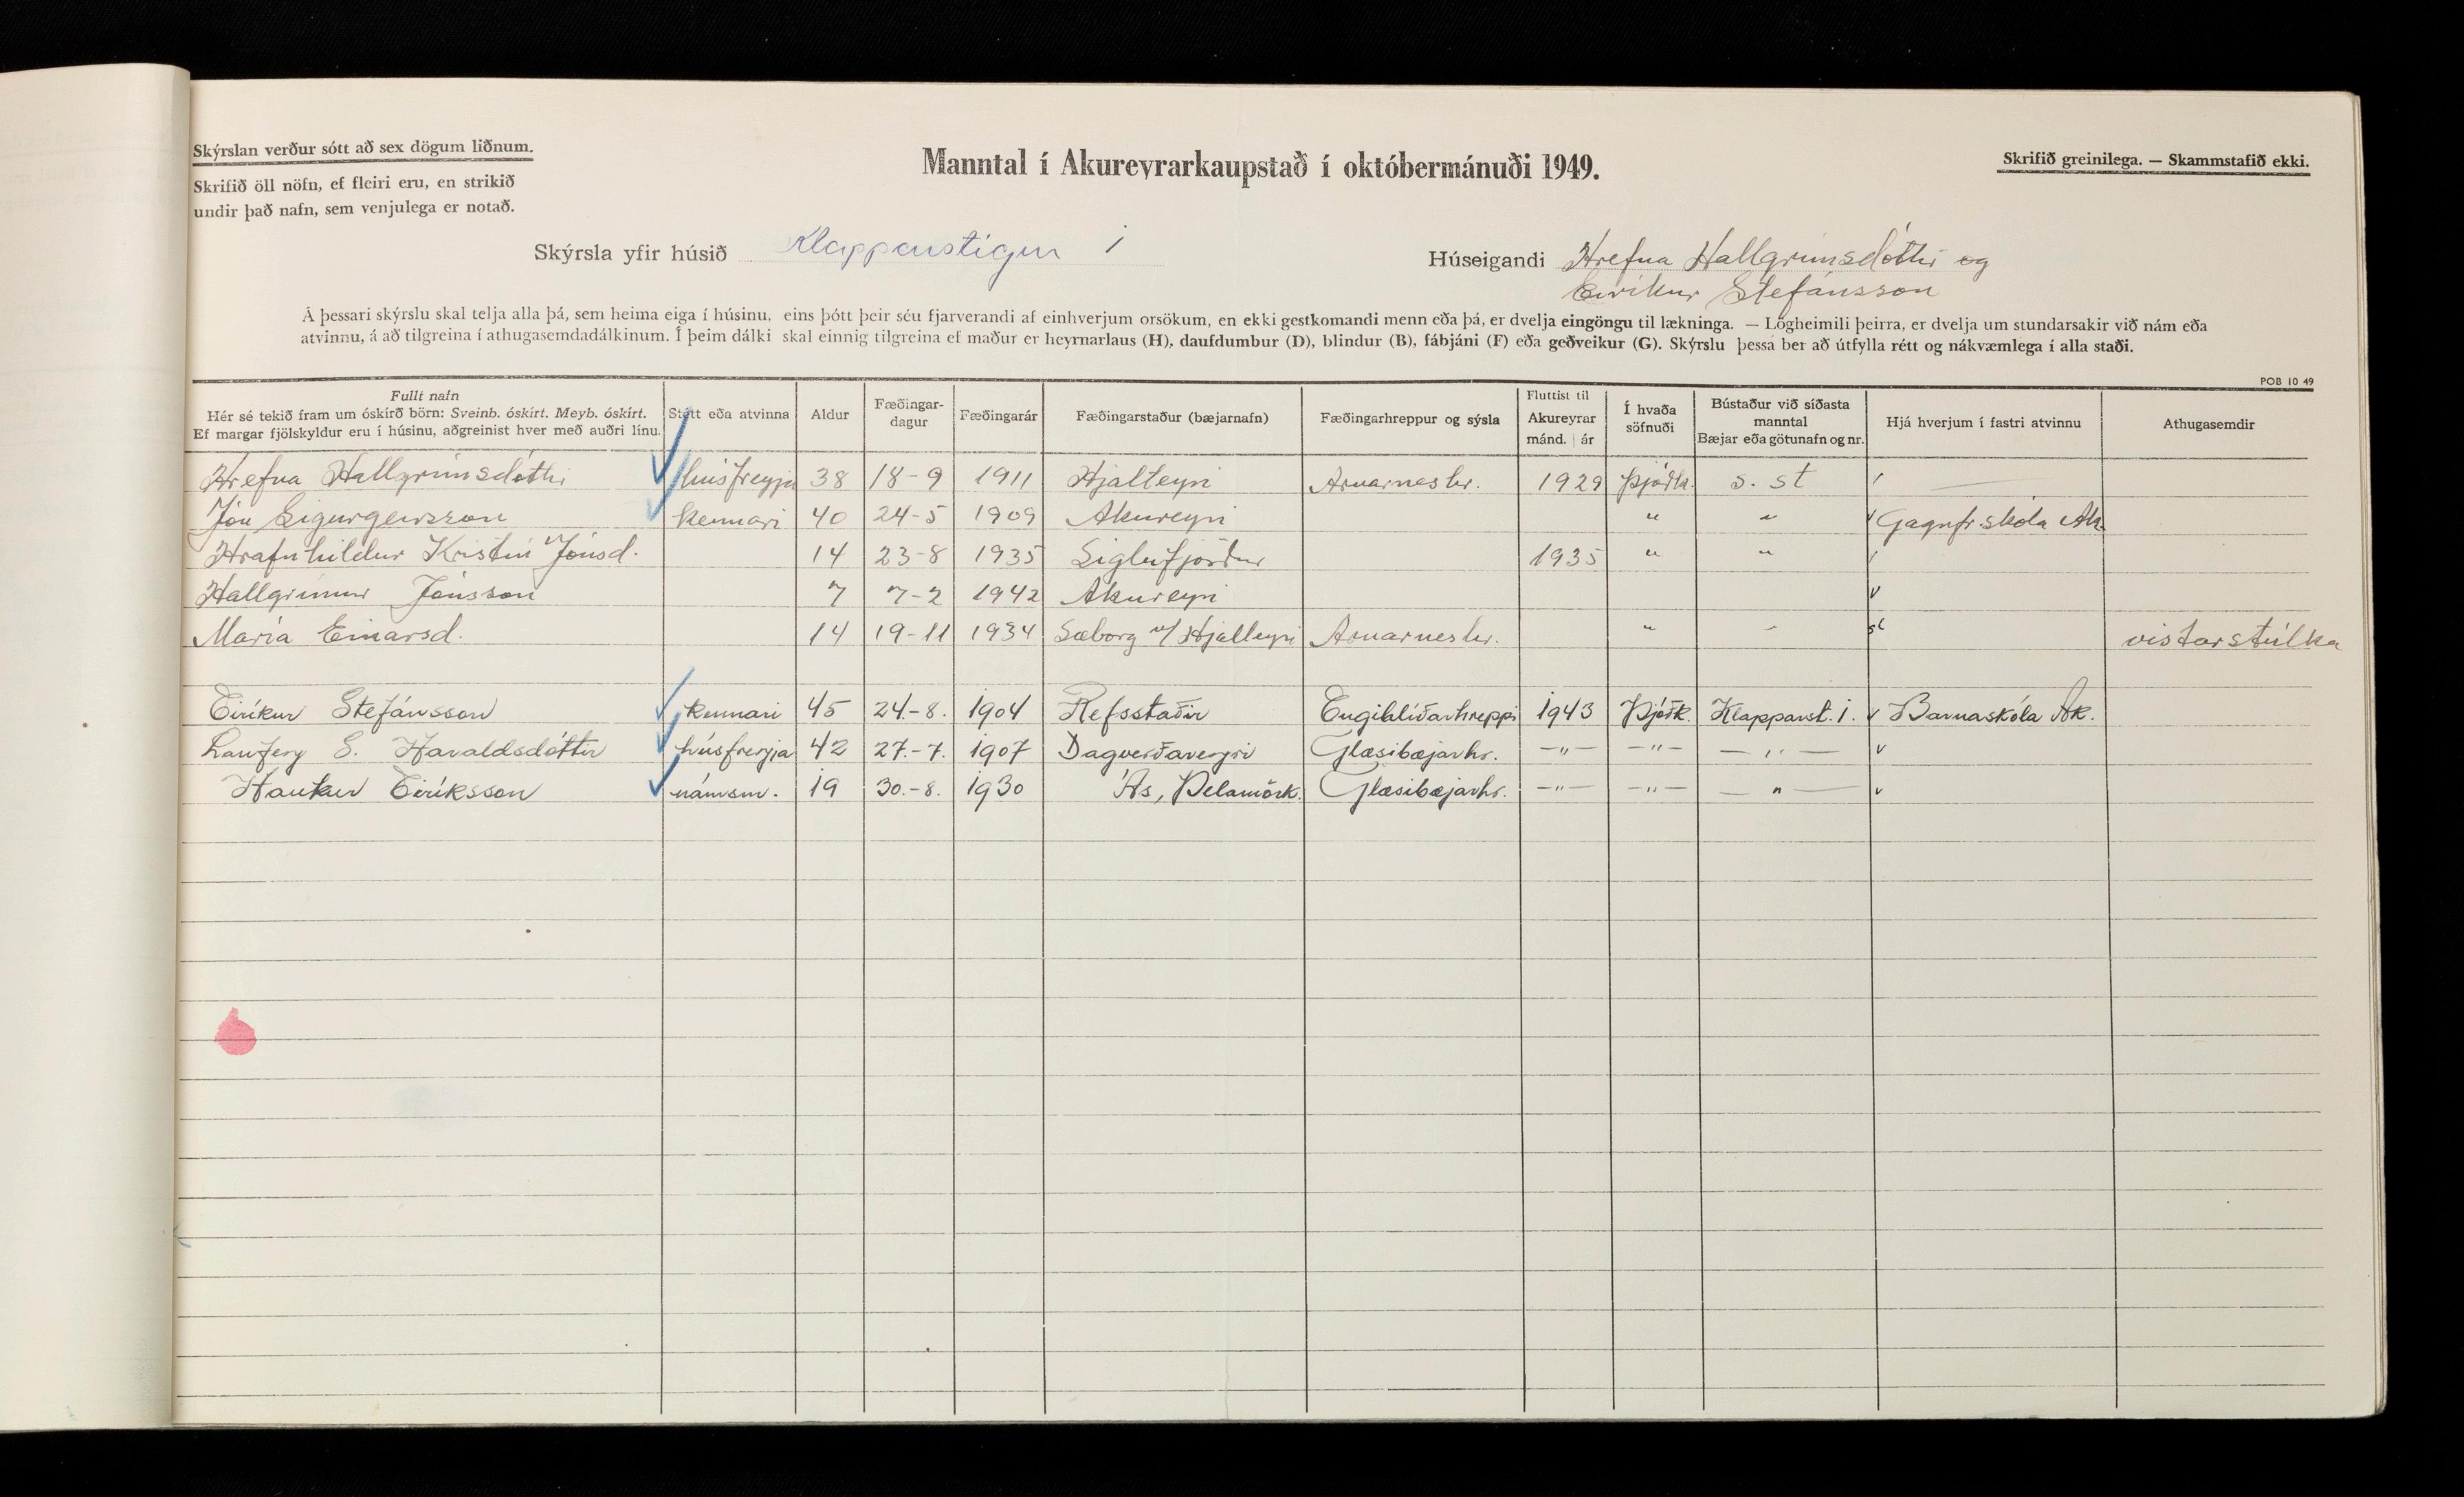 Skýrslan verður sótt að sex dögum liðnum.
Skrifið öll nöfn, ef fleiri eru, en strikið
undir það nafn, sem venjulega er notað.
Manntal í Akureyrarkaupstað í októbermánuði 1949.
Skrifið greinilega. — Skammstafið ekki.
Skýrsla yfir húsið Klapparstígur 1
Húseigandi Hrefna Hallgrímsdóttir og
Eiríkur Stefánsson
Á þessari skýrslu skal telja alla þá, sem heima eiga í húsinu, eins þótt þeir séu fjarverandi af einhverjum orsökum, en ekki gestkomandi menn eða þá, er dvelja eingöngu til lækninga. — Lögheimili þeirra, er dvelja um stundarsakir við nám eða
atvinnu, á að tilgreina í athugasemdadálkinum. Í þeim dálki skal einnig tilgreina ef maður er heyrnarlaus (H), daufdumbur (D), blindur (B), fábjáni (F) eða geðveikur (G). Skýrslu þessa ber að útfylla rétt og nákvæmlega í alla staði.
POB 10 49
Fullt nafn
Hér sé tekið fram um óskírð börn: Sveinb. óskírt. Meyb. óskírt.
Ef margar fjölskyldur eru í húsinu, aðgreinist hver með auðri línu.
Stétt eða atvinna
Aldur
Fæðingar-
dagur
Fæðingarár
Fæðingarstaður (bæjarnafn)
Fæðingarhreppur og sýsla
Fluttist til
Akureyrar
mánd. ár
Í hvaða
söfnuði
Bústaður við síðasta
manntal
Bæjar eða götunafn og nr.
Hjá hverjum í fastri atvinnu
Athugasemdir
Hrefna Hallgrímsdóttir húsfreyja 38 18-9 1911 Hjalteyri Arnarneshr. 1929 Þjóðk. s. st —
Jón Sigurgeirsson kennari 40 24-5 1909 Akureyri " " Gagnfr.skóla Ak.
Hrafnhildur Kristín Jónsd. 14 23-8 1935 Siglufjörður 1935 " "
Hallgrímur Jónsson 7 7-2 1942 Akureyri
María Einarsd. 14 19-11 1934 Sæborg v/ Hjalteyri Arnarneshr. " " vistarstúlka
Eiríkur Stefánsson kennari 45 24.-8. 1904 Refsstaðir Engihlíðarhreppi 1943 Þjóðk. Klapparst. 1. Barnaskóla Ak.
Laufey S. Haraldsdóttir húsfreyja 42 27.-7. 1907 Dagverðareyri Glæsibæjarhr. —"— —"— —"—
Haukur Eiríksson námsm. 19 30.-8. 1930 Ás, Þelamörk. Glæsibæjarhr. —"— —"— —"—